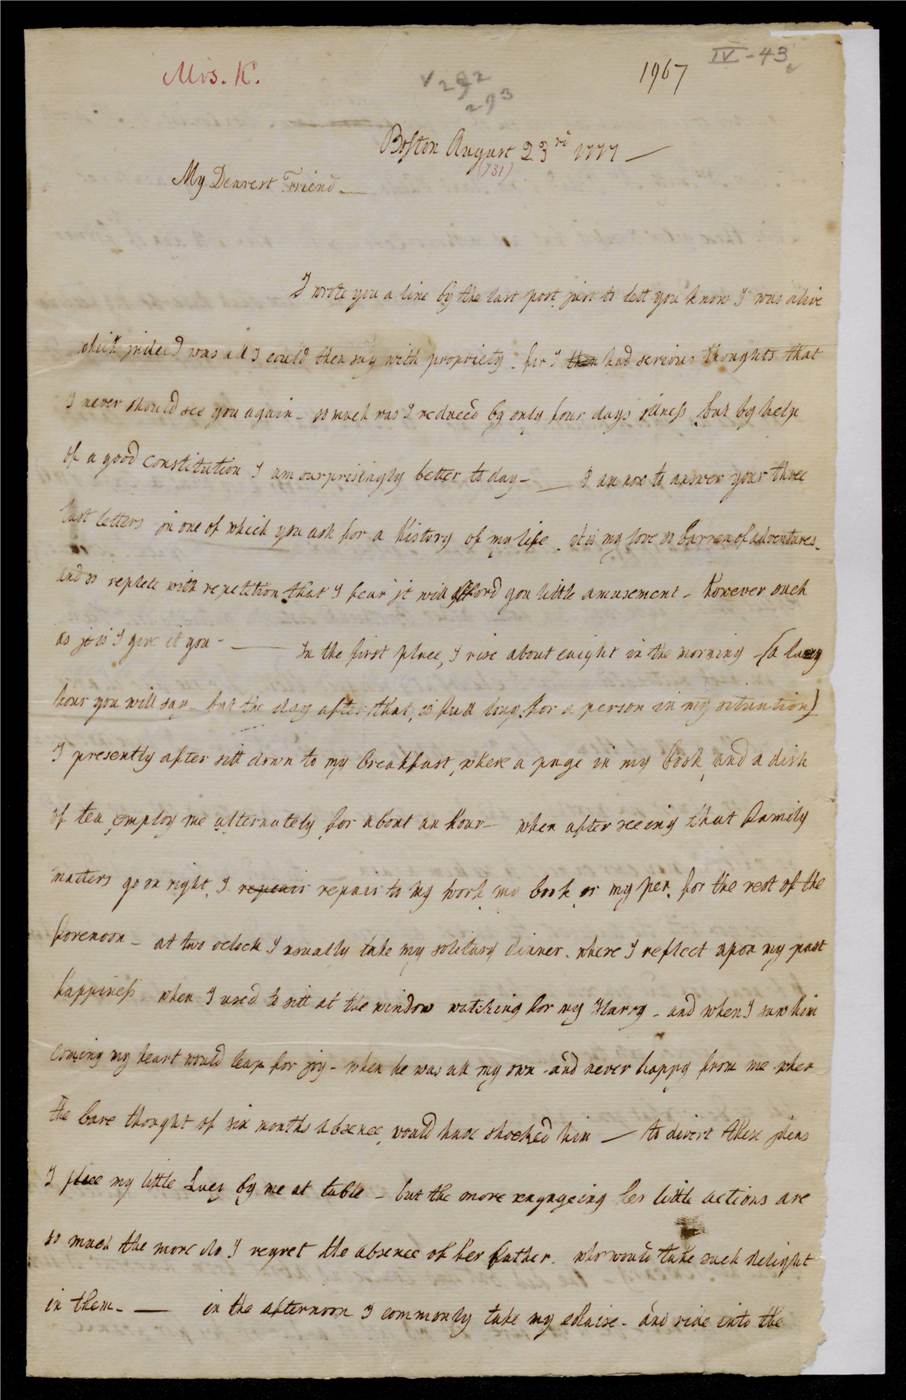 Mrs. K.
1967
IV-43
v 292
293
Boston August 23rd 1777 —
(781)
My Dearest Friend —
I wrote you a line by the last post just to let you know I was alive
which indeed was all I could then say with propriety. for I then had serious thoughts that
I never should see you again - so much was I reduced by only four days illness but by help
of a good constitution I am surprisingly better to day - — I am now to answer your three
last letters in one of which you ask for a history of my life. it is my love so barren of adventures.
and so replete with repetition that I fear it will afford you little amusement - however such
as it is I give it you - — In the first place, I rise about eaight in the morning - (a lazy
hour you will say - but the day after that, is full long, for a person in my situation)
I presently after sitt down to my breakfast, where a page in my book, and a dish
of tea, employ me alternately for about an hour - when after seeing that family
matters go on right, I repair repair to my work, my book, or my pen, for the rest of the
forenoon - at two oclock I usually take my solitary dinner. where I reflect upon my past
happiness when I used to sitt at the window watching for my Harry - and when I saw him
coming my heart would leap for joy - when he was all my own and never happy from me when
the bare thought of six months absence, would have shocked him — to divert these ideas
I place my little Lucy by me at table - but the more engageing her little actions are
so much the more do I regret the absence of her father. who would take such delight
in them - — in the afternoon I commonly take my chaise - and ride into the